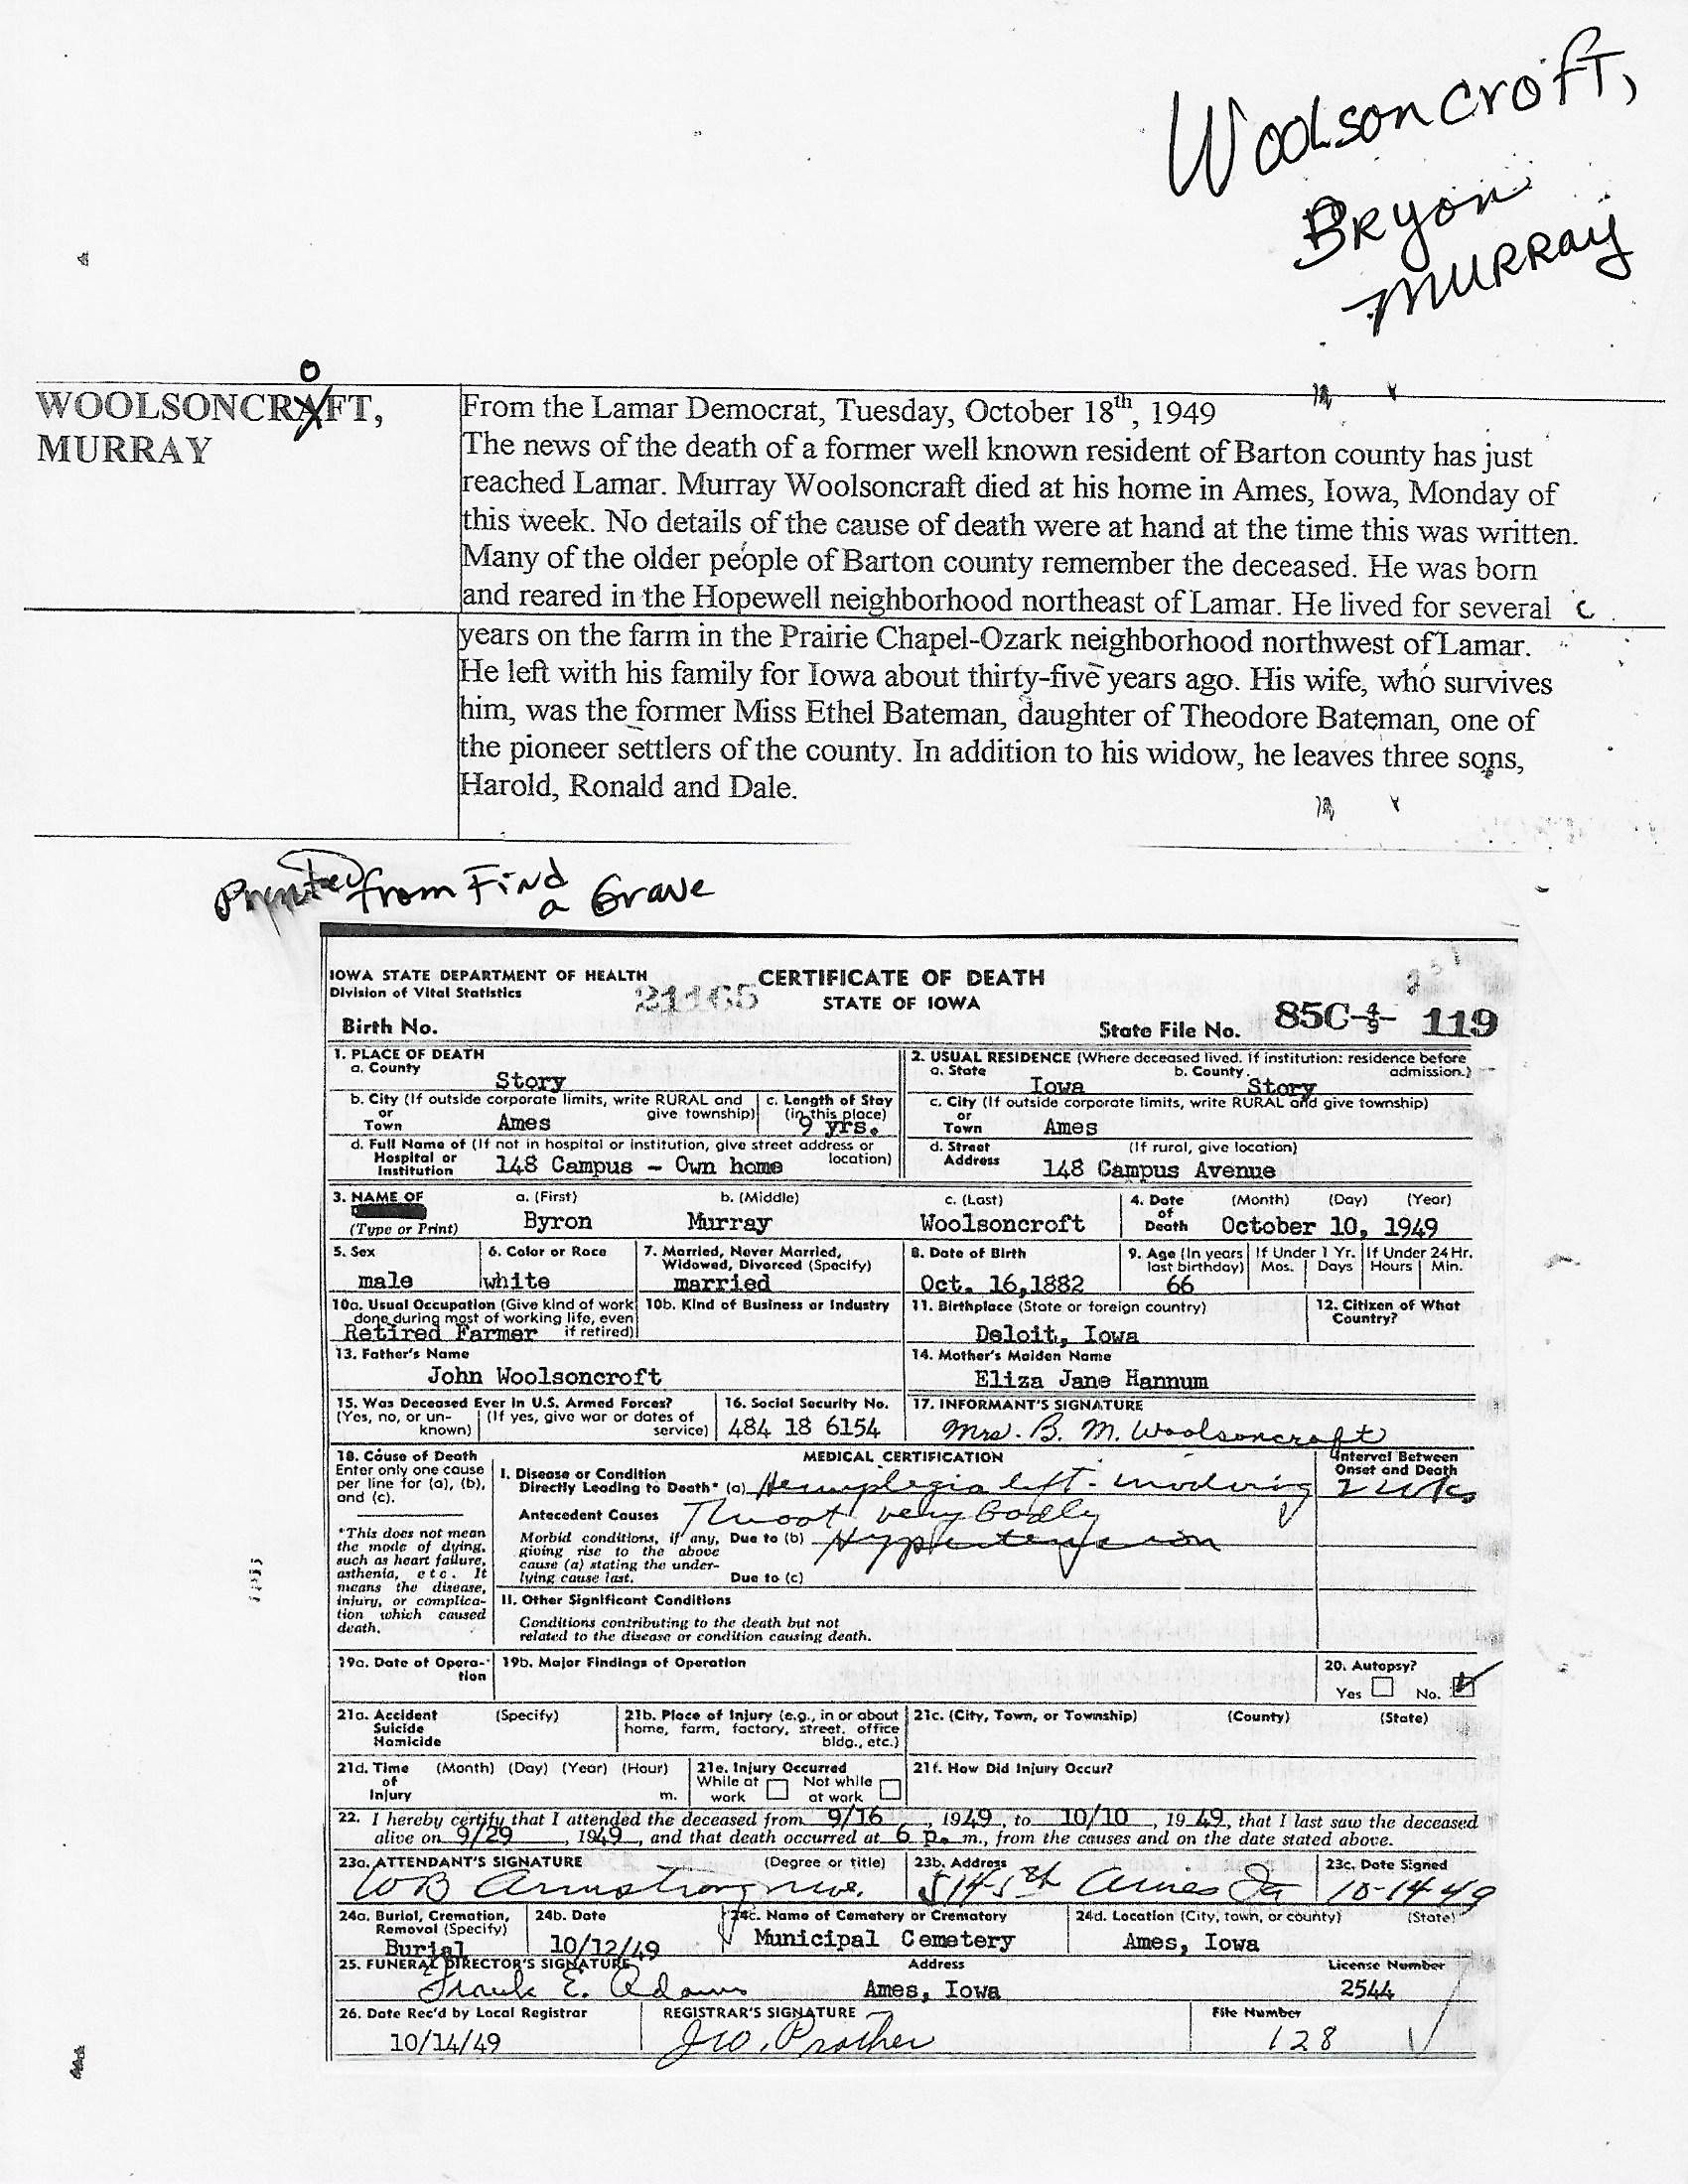 Woolsoncroft,
Bryon
Murray
O
WOOLSONCRAFT,
MURRAY
From the Lamar Democrat, Tuesday, October 18th, 1949
The news of the death of a former well known resident of Barton county has just
reached Lamar. Murray Woolsoncraft died at his home in Ames, Iowa, Monday of
this week. No details of the cause of death were at hand at the time this was written.
Many of the older people of Barton county remember the deceased. He was born
and reared in the Hopewell neighborhood northeast of Lamar. He lived for several
years on the farm in the Prairie Chapel-Ozark neighborhood northwest of Lamar.
He left with his family for Iowa about thirty-five years ago. His wife, who survives
him, was the former Miss Ethel Bateman, daughter of Theodore Bateman, one of
the pioneer settlers of the county. In addition to his widow, he leaves three sons,
Harold, Ronald and Dale.
Printed from Find
a Grave
IOWA STATE DEPARTMENT OF HEALTH
Division of Vital Statistics
21165
CERTIFICATE OF DEATH
STATE OF IOWA
Birth No.
State File No. 85C- 119
1. PLACE OF DEATH
a. County
Story
b. City (If outside corporate limits, write RURAL and give township)
or
Town Ames
c. Length of Stay
(in this place)
9 yrs.
d. Full Name of (If not in hospital or institution, give street address or location)
Hospital or
Institution 148 Campus - Own home
2. USUAL RESIDENCE (Where deceased lived. If institution: residence before admission.)
a. State Iowa b. County. Story
c. City (If outside corporate limits, write RURAL and give township)
or
Town Ames
d. Street (If rural, give location)
Address 148 Campus Avenue
3. NAME OF
(Type or Print)
a. (First) b. (Middle) c. (Last)
Byron Murray Woolsoncroft
4. Date (Month) (Day) (Year)
of
Death October 10, 1949
5. Sex
male
6. Color or Race
white
7. Married, Never Married,
Widowed, Divorced (Specify)
married
8. Date of Birth
Oct. 16,1882
9. Age (In years
last birthday)
66
If Under 1 Yr.
Mos. Days
If Under 24 Hr.
Hours Min.
10a. Usual Occupation (Give kind of work
done during most of working life, even
if retired)
Retired Farmer
10b. Kind of Business or Industry
11. Birthplace (State or foreign country)
Deloit, Iowa
12. Citizen of What
Country?
13. Father's Name
John Woolsoncroft
14. Mother's Maiden Name
Eliza Jane Hannum
15. Was Deceased Ever in U.S. Armed Forces?
(Yes, no, or unknown) (If yes, give war or dates of service)
16. Social Security No.
484 18 6154
17. INFORMANT'S SIGNATURE
Mrs. B. M. Woolsoncroft
18. Cause of Death
Enter only one cause
per line for (a), (b),
and (c).
*This does not mean
the mode of dying,
such as heart failure,
asthenia, etc. It
means the disease,
injury, or complica-
tion which caused
death.
MEDICAL CERTIFICATION
Interval Between
Onset and Death
I. Disease or Condition
Directly Leading to Death* (a) Hemiplegia left - involving 2 wks
Throat very badly
Antecedent Causes
Morbid conditions, if any,
giving rise to the above
cause (a) stating the under-
lying cause last.
Due to (b) Hypertension
Due to (c)
II. Other Significant Conditions
Conditions contributing to the death but not
related to the disease or condition causing death.
19a. Date of Opera-
tion
19b. Major Findings of Operation
20. Autopsy?
Yes No.
21a. Accident (Specify)
Suicide
Homicide
21b. Place of Injury (e.g., in or about
home, farm, factory, street, office
bldg., etc.)
21c. (City, Town, or Township) (County) (State)
21d. Time (Month) (Day) (Year) (Hour)
of
Injury m.
21e. Injury Occurred
While at work Not while at work
21f. How Did Injury Occur?
22. I hereby certify that I attended the deceased from 9/16, 1949, to 10/10, 1949, that I last saw the deceased
alive on 9/29, 1949, and that death occurred at 6 p. m., from the causes and on the date stated above.
23a. ATTENDANT'S SIGNATURE (Degree or title)
WB Armstrong
23b. Address
Ames Ia
23c. Date Signed
10-14-49
24a. Burial, Cremation,
Removal (Specify)
Burial
24b. Date
10/12/49
24c. Name of Cemetery or Crematory
Municipal Cemetery
24d. Location (City, town, or county) (State)
Ames, Iowa
25. FUNERAL DIRECTOR'S SIGNATURE Address License Number
Frank E. Adams Ames, Iowa 2544
26. Date Rec'd by Local Registrar
10/14/49
REGISTRAR'S SIGNATURE
J.W. Prather
File Number
128